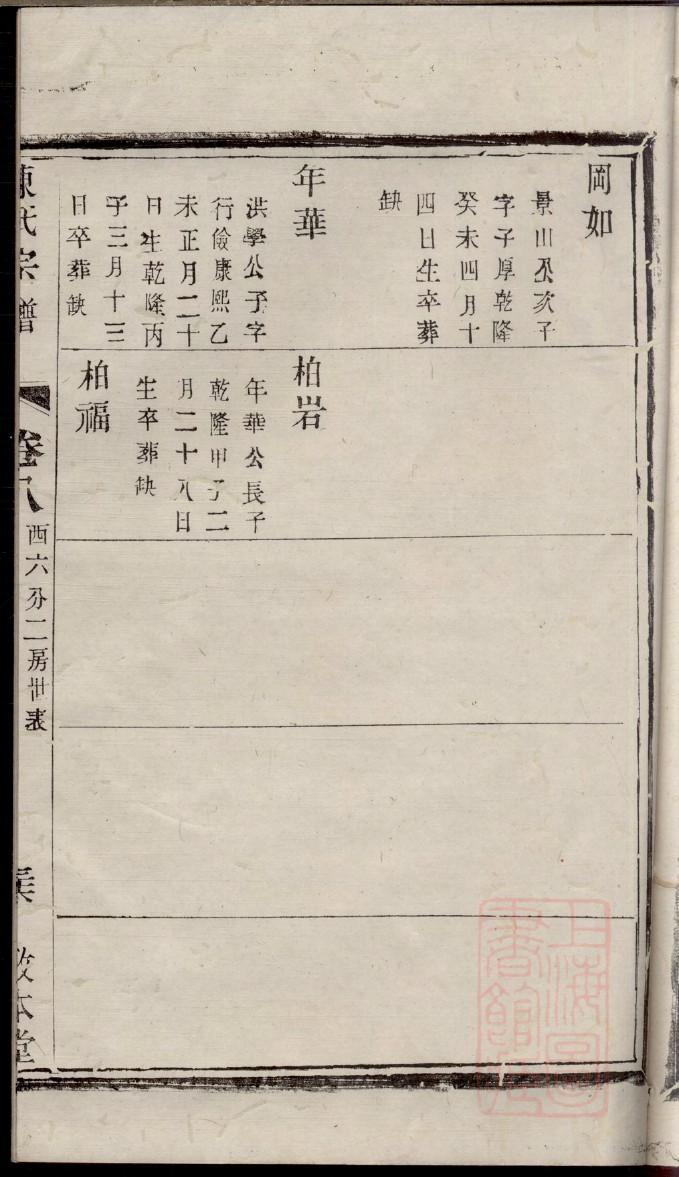 岡如
景山公亥子
字子厚乾隆
癸未四月十
四日生卒葬
缺
年華
洪學公子字
行儉康熙乙
未正月二十
日生乾隆丙
子三月十三
日卒葬缺
柏岩
年華公長子
乾隆甲子二
月二十八日
生卒葬缺
柏福
陳氏宗譜
卷八
西六分二房世表
敬本堂
上海圖書館藏